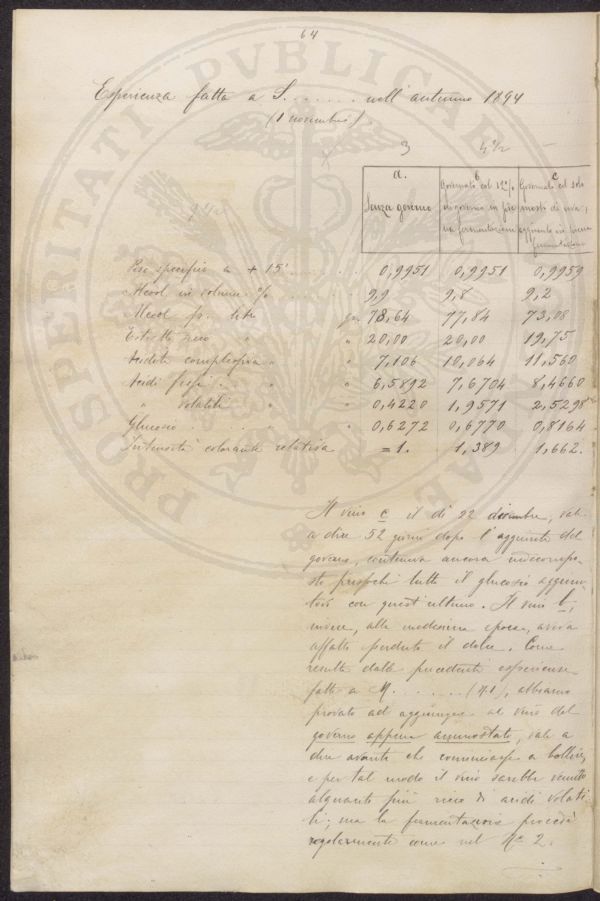 64
PROSPERITATI PVBLICAE
Esperienza fatta a S. . . . . . . nell' autunno 1894
(1 novembre)
3 4 1/2
9 1/2
a. b c
Senza governo
Governato col 12 %
di governo in pie
na fermentazione
Governato col solo
mosto di uva,
aggiunto in piena
fermentazione
Peso specifico a + 15° . . . . . 0,9951 0,9951 0,9959
Alcool in volume % . . . . . 9,9 9,8 9,2
Alcool pr. litro gr. 78,64 77,84 73,08
Estratto secco " " 20,00 20,00 19,75
Acidità complessiva " " 7,106 10,064 11,560
Acidi fissi . . " " 6,5892 7,6704 8,4660
" volatili " " 0,4220 1,9571 2,5298
Glucosio . . . . . " 0,6272 0,6770 0,8164
Intensità colorante relativa =1. 1,389 1,662.
Il vino c il dì 22 dicembre, vale
a dire 52 giorni dopo l'aggiunta del
governo, conteneva ancora indecompo-
sto pressoché tutto il glucosio aggiun-
tovi con quest'ultimo. Il vino b,
invece, alla medesima epoca, aveva
affatto perduto il dolce. Come
resulta dalle precedenti esperienze
fatte a M. . . . . . . (41), abbiamo
provato ad aggiungere al vino del
governo appena ammostato, vale a
dire avanti che cominciasse a bollire,
e per tal modo il vino sarebbe venuto
alquanto più ricco di acidi volati
li; ma la fermentazione procedé
regolarmente come nel N° 2.